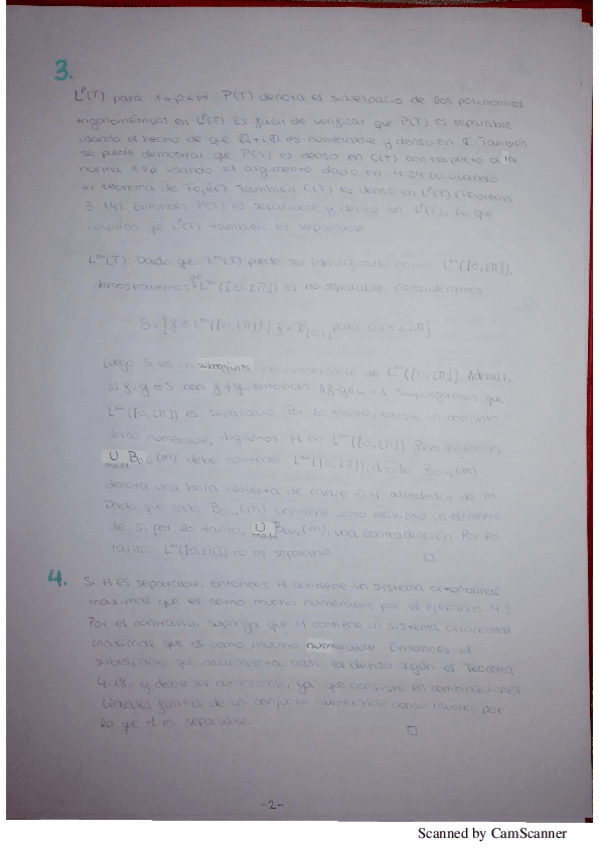 3.
L^p(T) para 1≤p<∞. P(T) denota el subespacio de los polinomios
trigonométricos en L^p(T). Es fácil de verificar que P(T) es separable
usando el hecho de que Q+iQ es numerable y denso en C. También
se puede demostrar que P(T) es denso en C(T) con respecto a la
norma ‖·‖p usando el argumento dado en 4.24 (o usando
el teorema de Fejér). También C(T) es denso en L^p(T) (Teorema
3.14). Entonces P(T) es separable y denso en L^p(T), lo que
implica qe L^p(T) también es separable
L^∞(T). Dado qe L^∞(T) puede ser identificado como L^∞([0,2π]),
demostraremos que L^∞([0,2π]) es no separable. Consideramos
S = {f ∈ L^∞([0,2π]) / f = χ[0,r], para 0<r<2π}
Luego S es un subconjunto no numerable de L^∞([0,2π]). Además,
si f, g ∈ S con f≠g, entonces ‖f-g‖∞ = 1. Supongamos que
L^∞([0,2π]) es separable. Por lo tanto, existe un conjunto
denso numerable, digamos M en L^∞([0,2π]). Pero entonces
∪ m∈M B0,4(m) debe contener L^∞([0,2π]), donde B0,4(m)
denota una bola abierta de radio 0,4 alrededor de m.
Dado que cada B0,4(m) contiene como máximo un elemento
de S, por lo tanto, ∪ m∈M B0,4(m), una contradicción. Por lo
tanto, L^∞([0,2π]) no es separable □
4. Si H es separable, entonces H contiene un sistema ortonormal
maximal que es como mucho numerable por el ejercicio 4.2.
Por el contrario, suponga que H contiene un sistema ortonormal
maximal que es como mucho numerable. Entonces el
subespacio que es denso según el Teorema
4.18, y debe ser ya que consiste en combinaciones
lineales finitas de un conjunto numerable como mucho, por
lo qe H es separable. □
-2-
Scanned by CamScanner